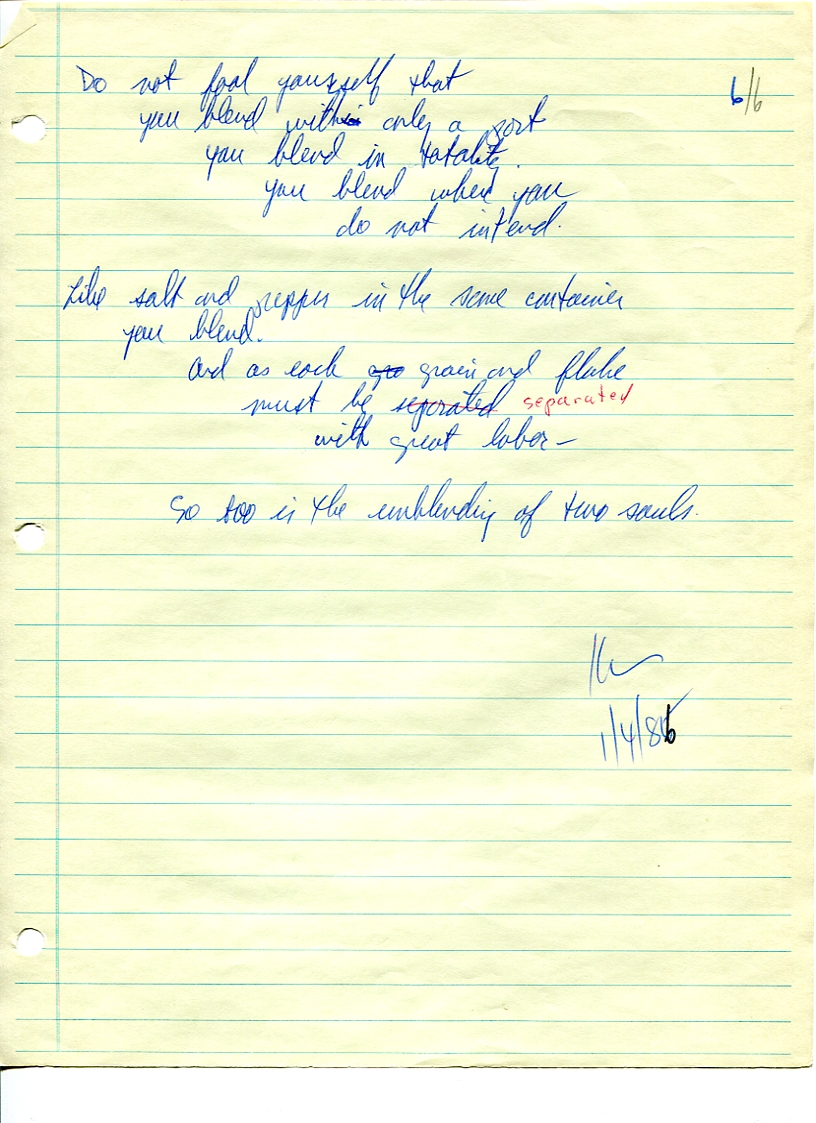 6/6
Do not fool yourself that
you blend with only a part
you blend in totality.
you blend when you
do not intend.
Like salt and pepper in the same container
you blend.
And as each grain and flake
must be separated separated
with great labor—
So too is the unblending of two souls.
1/4/86